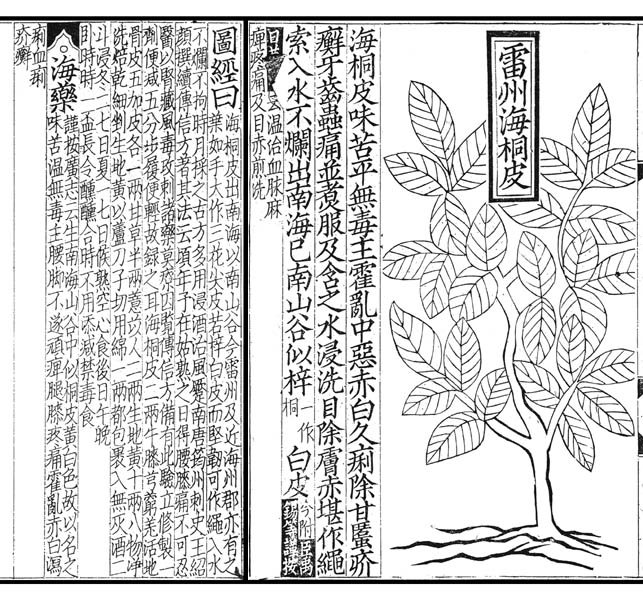 雷州海桐皮
海桐皮味苦平無毒主霍亂中惡赤白久痢除甘䘌疥
癬牙齒蟲痛並煮服及含之水浸洗目除膚赤堪作繩
索入水不爛出南海已南山谷似梓一作桐白皮今附臣禹錫等謹按
日華子云温治血脉麻
痺疼痛及目赤煎洗
圖經曰海桐皮出南海以南山谷今雷州及近海州郡亦有之
葉如手大作三花尖皮若梓白皮而堅韌可作繩入水
不爛不拘時月採之古方多用浸酒治風蹷南唐筠州刺史王紹
顔撰續傳信方著其法云頃年予在姑孰之日得腰膝痛不可忍
醫以腎藏風毒攻刺諸藥莫療因覽傳信方備有此驗立修製一
劑便減五分步履便輕故録之耳海桐皮二兩牛膝芎藭羌活地
骨皮五加皮各一兩甘草半兩薏苡人二兩生地黄十兩八物淨
洗焙乾細剉生地黄以蘆刀子切用綿一兩都包裹入無灰酒二
斗浸冬二七日夏一七日候熟空心食後日午晚
卧時時一盃長令醺醺合時不用添減禁毒食
海藥謹按廣志云生南海山谷中似桐皮黄白色故以名之
味苦温無毒主腰脚不遂頑痺腿膝疼痛霍亂赤白瀉
痢血痢
疥癬